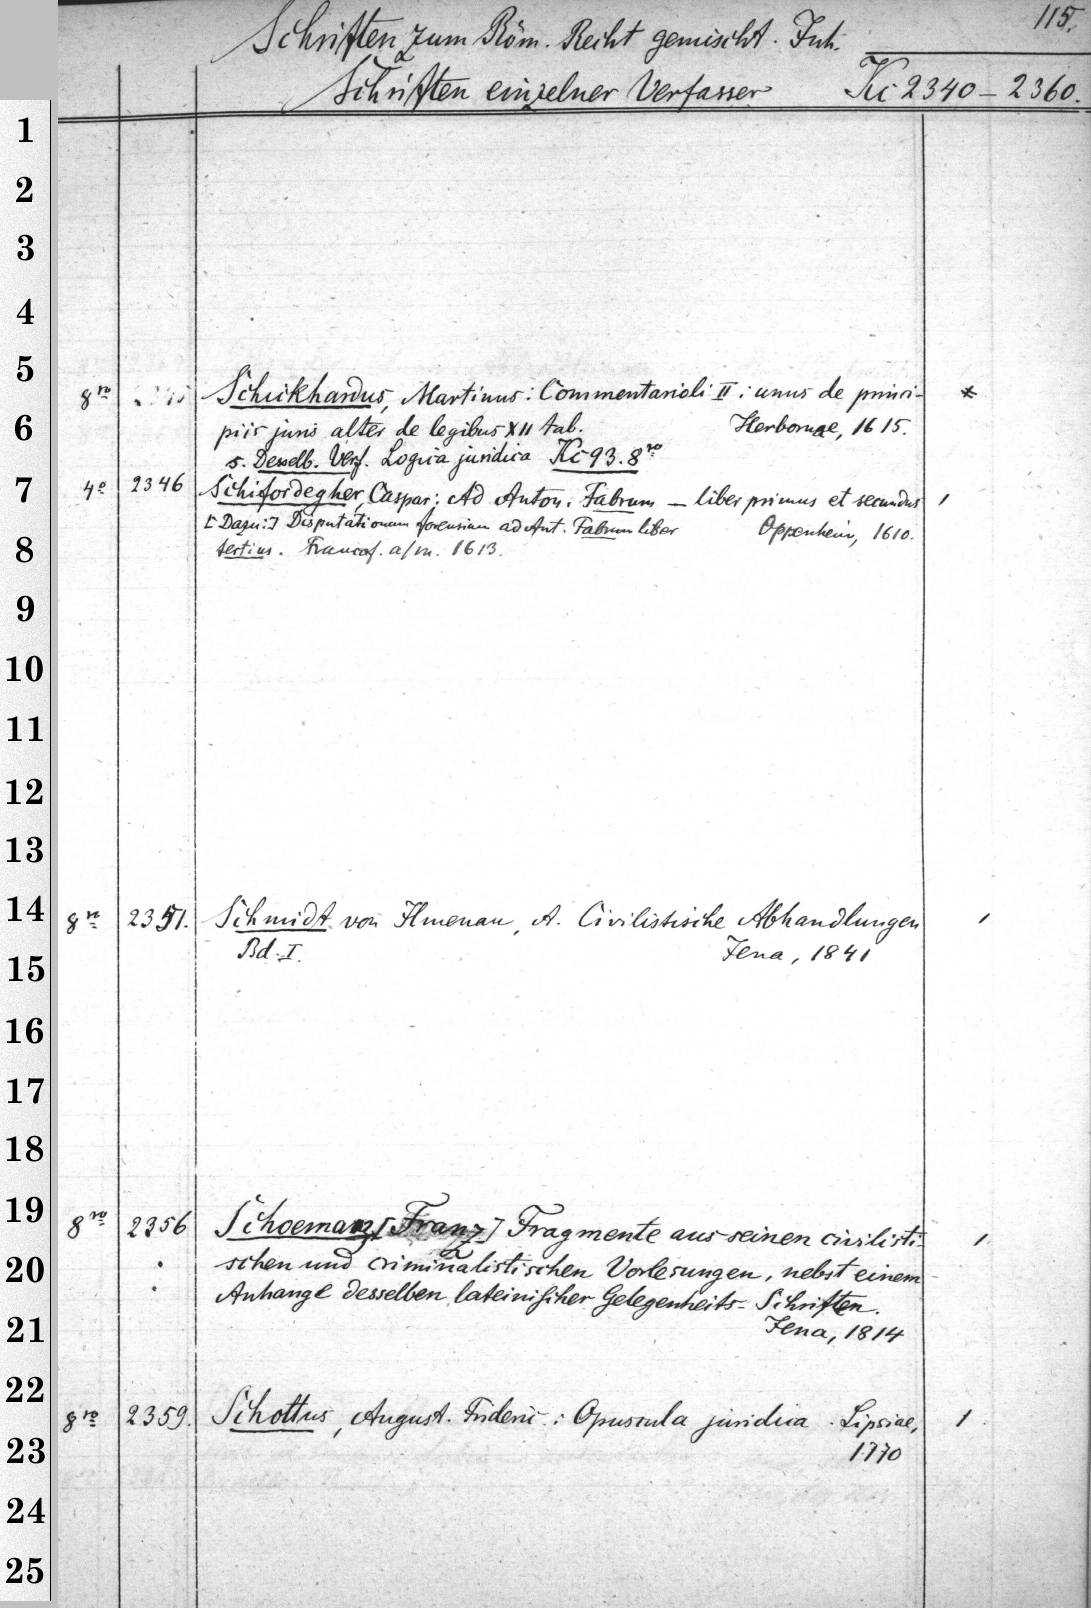 115.
Schriften zum Röm. Recht gemischt. Inh.
Schriften einzelner Verfasser Kc 2340 – 2360.
1
2
3
4
5
8ro Schickhardus, Martinus: Commentarioli II: unus de princi- *
6
piis juris alter de legibus XII tab. Herbornae, 1615.
s. Desselb. Verf. Logica juridica Kc 93. 8ro
7
4o 2346 Schifordegher, Caspar: Ad Anton. Fabrum — liber primus et secundus 1
[Dazu:] Disputationum forensium ad Ant. Fabrum liber Oppenheim, 1610.
8
tertius. Francof. a/m. 1613.
9
10
11
12
13
14
8ro 2351. Schmidt von Ilmenau, A. Civilistische Abhandlungen 1
15
Bd. I. Jena, 1841
16
17
18
19
8ro 2356 Schoeman, [Franz] Fragmente aus seinen civilisti- 1
20
schen und criminalistischen Vorlesungen, nebst einem
Anhange desselben lateinischer Gelegenheits-Schriften.
21
Jena, 1814
22
8ro 2359. Schottus, August. Frideric.: Opuscula juridica. Lipsiae, 1
23
1770
24
25